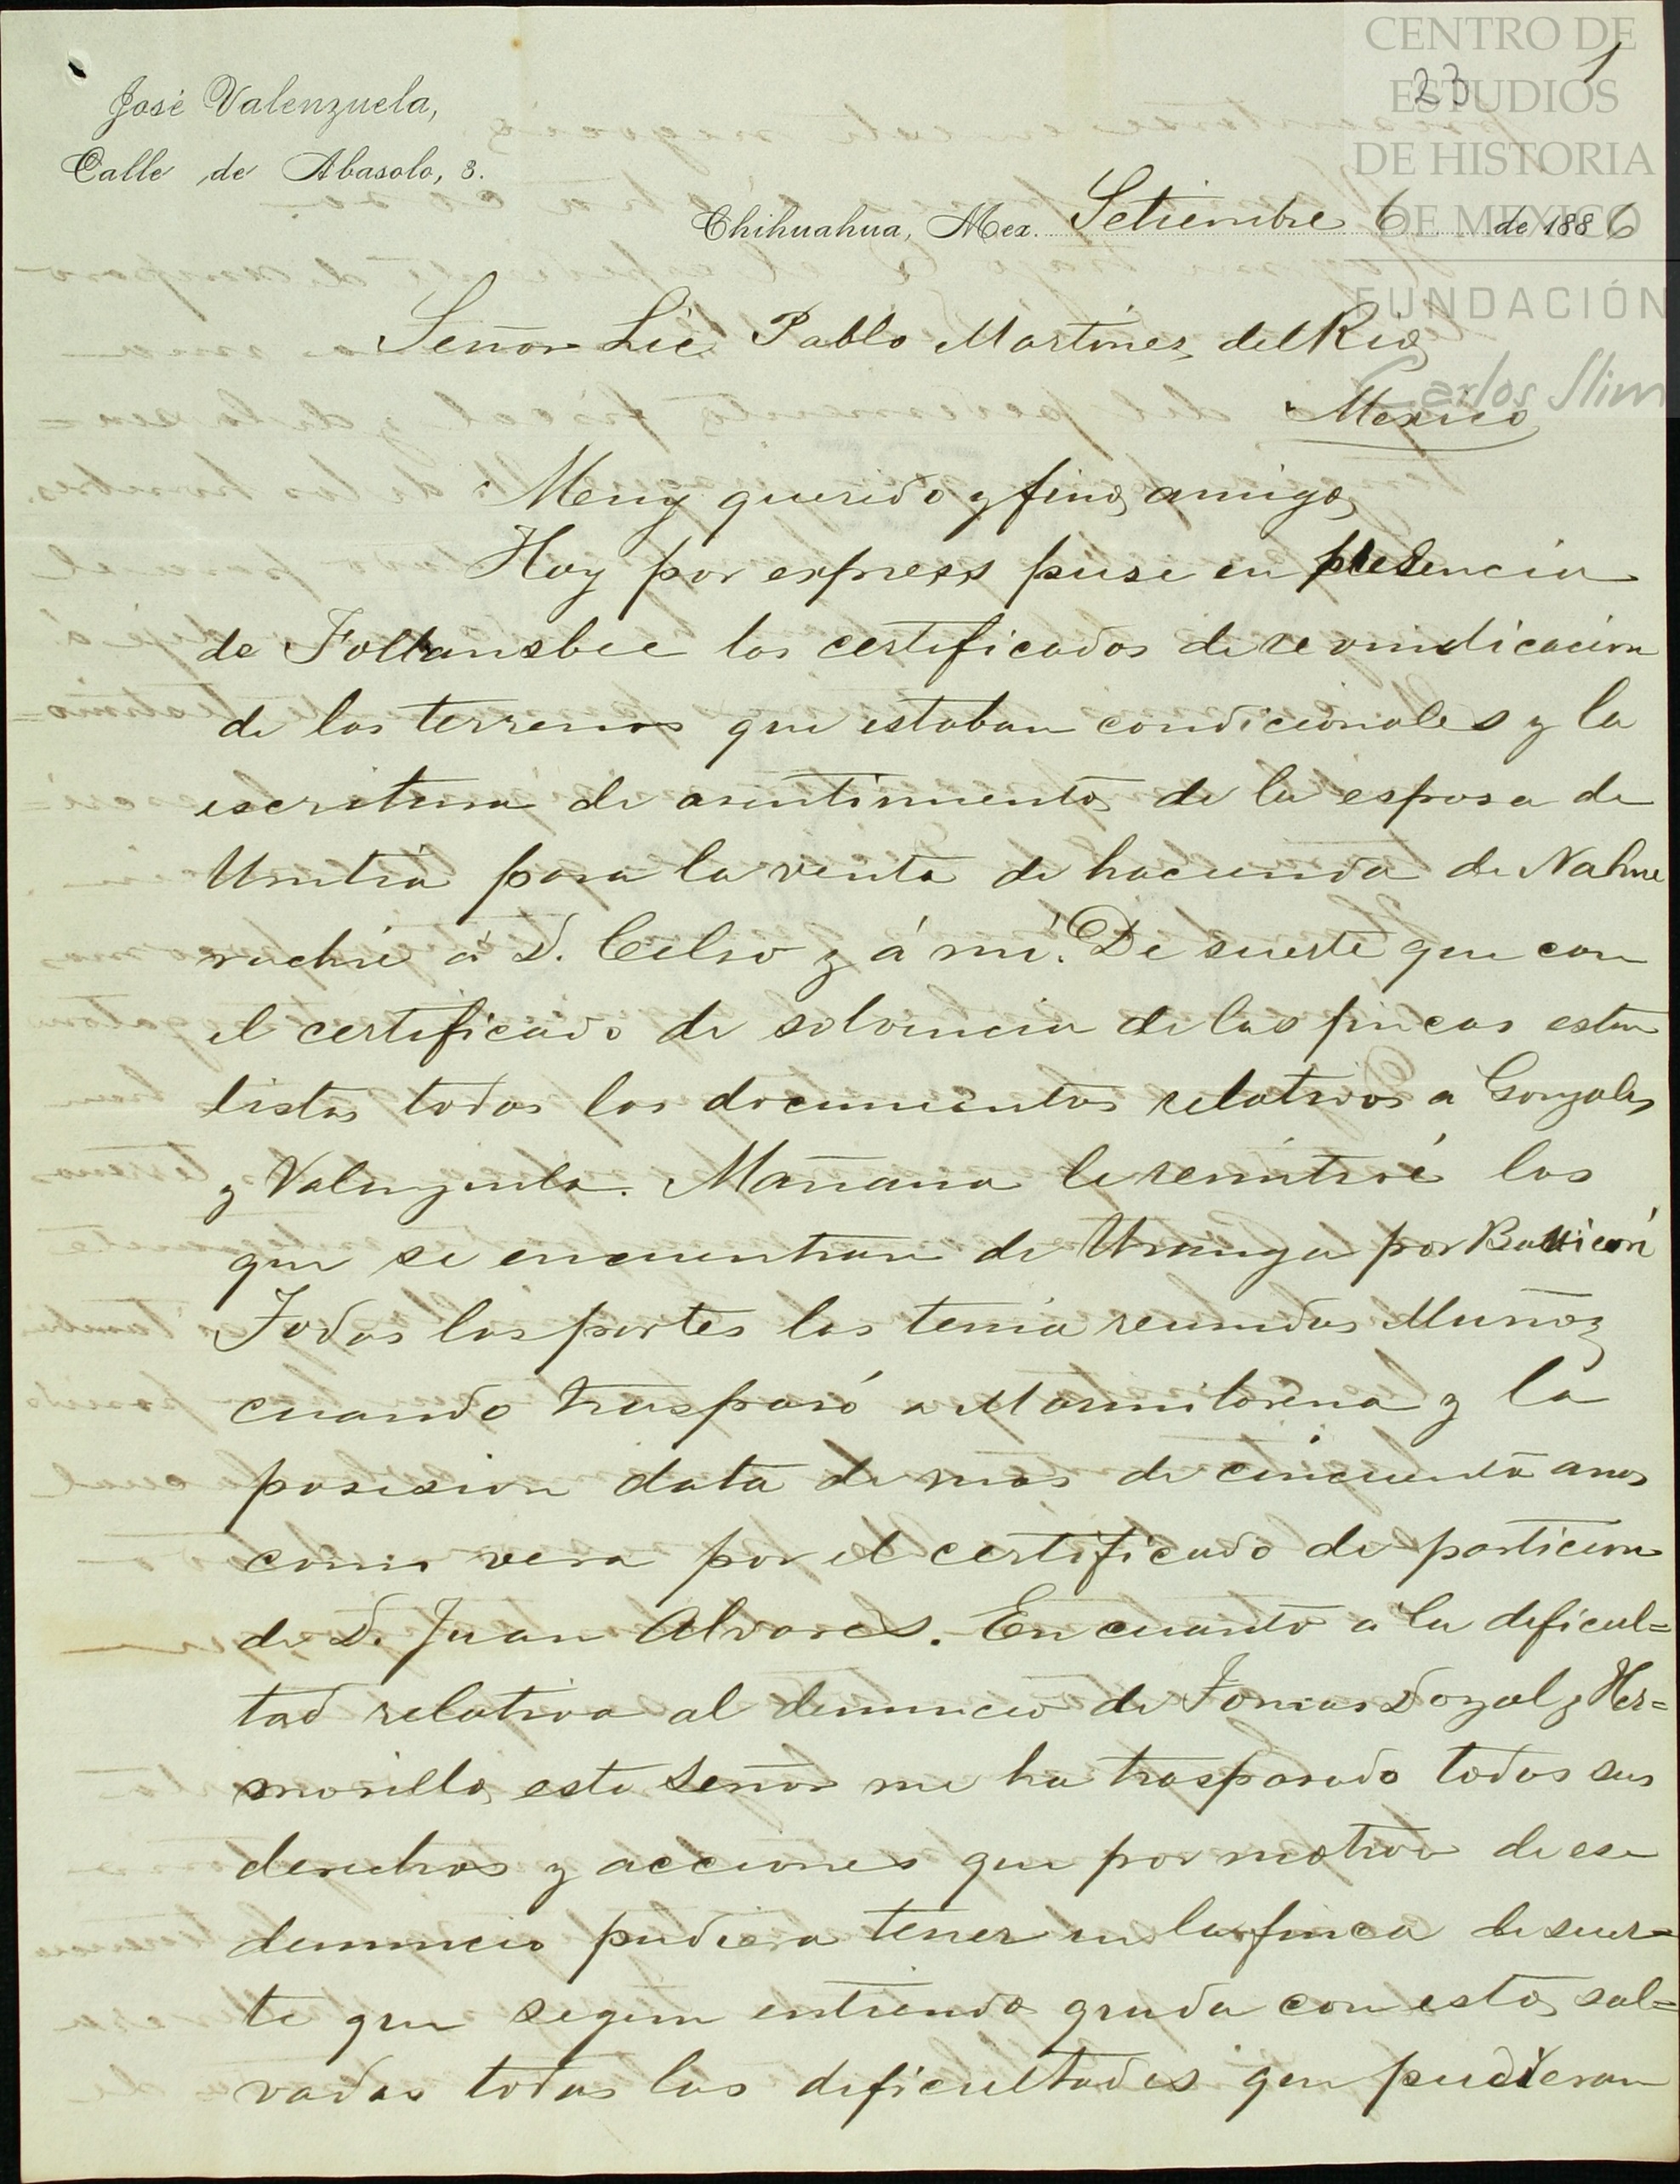 CENTRO DE
ESTUDIOS
DE HISTORIA
DE MEXICO
FUNDACIÓN
Carlos Slim
23
1
José Valenzuela,
Calle de Abasolo, 3.
Chihuahua, Mex. Setiembre 6 de 1886
Señor Lic. Pablo Martinez del Rio
Mexico
Muy querido y fino amigo
Hoy por express puse en presencia
de Follansbee los certificados de revindicacion
de los terrenos que estaban condicionales y la
escritura de asentimiento de la esposa de
Urrutia para la venta de hacienda de Nahue
rachic á D. Celso y á mi. De suerte que con
el certificado de solvencia de las fincas estan
listos todos los documentos relativos a Gonzales
y Valenzuela. Mañana le remitiré los
que se encuentran de Uranga por
Todas las partes las tenia reunidas Muñoz
cuando trasparó a Marmitorena y la
posesion data de mas de cincuenta anos
como vera por el certificado de particion
de D. Juan Alvares. En cuanto a la dificul=
tad relativa al denuncio de Tomas Dozal y Her=
mosillo este señor me ha trasparado todos sus
derechos y acciones que por motivo de ese
denuncio pudiera tener en la finca de suer=
te que segun entiendo queda con esto sal=
vadas todas las dificultades que pudieran